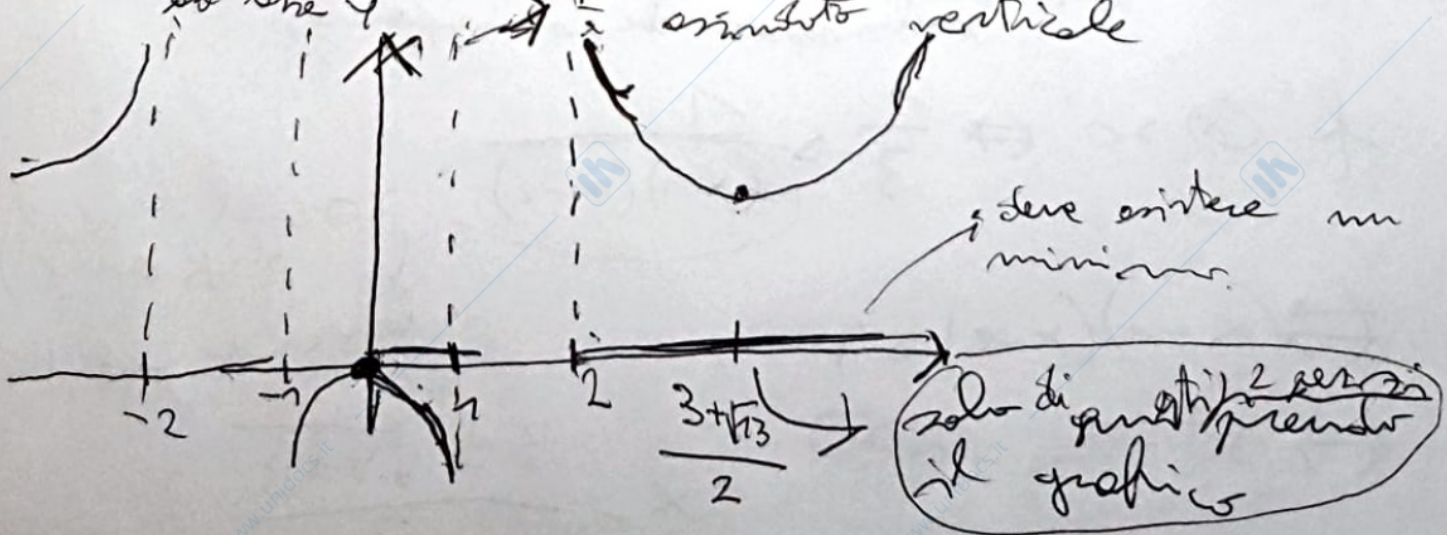 asintoto verticale
deve esistere un
minimo
-2 -1 1 2
3+√13
2
solo di questi 2 pezzi prendo
il grafico
www.unidocs.it